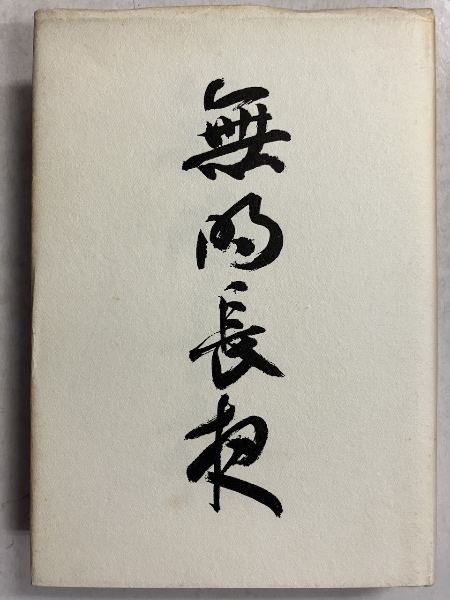 無明長夜